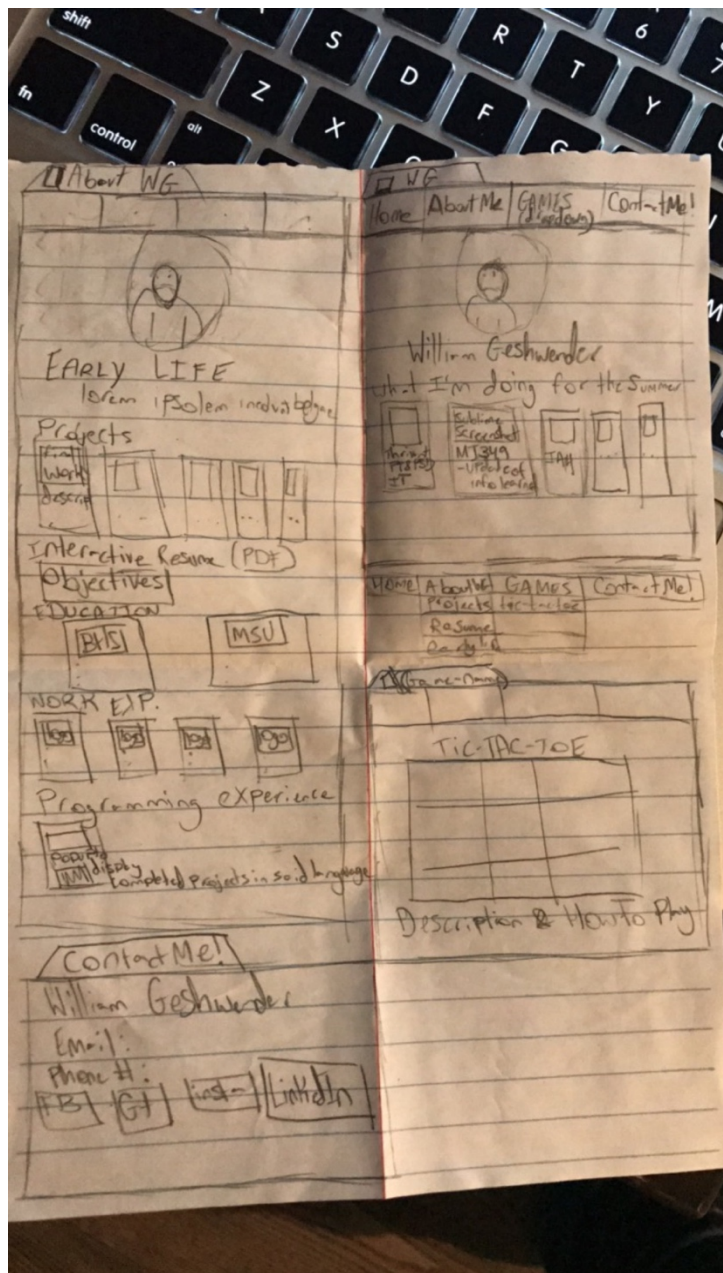 shift
fn
control
alt
Z
X
S
D
F
R
T
Y
6
7
G
M
About WG
EARLY LIFE
lorem
Projects
Work
descrip
Interactive Resume (PDF)
Objectives
EDUCATION
BHS
MSU
WORK EXP.
logo
logo
logo
logo
Programming experience
display
completed projects in said language
Contact Me!
William Geshwender
Email:
Phone #:
FB
G+
insta
LinkedIn
WG
Home
About Me
GAMES
(dropdown)
Contact Me!
William Geshwender
What I'm doing for the Summer
Sublime
Screenshot
MI349
-updated of
info learned
IAH
HOME
About Me
GAMES
Contact Me!
Projects
tic-tac-toe
Resume
early life
(Game-Name)
TIC-TAC-TOE
Description & How To Play